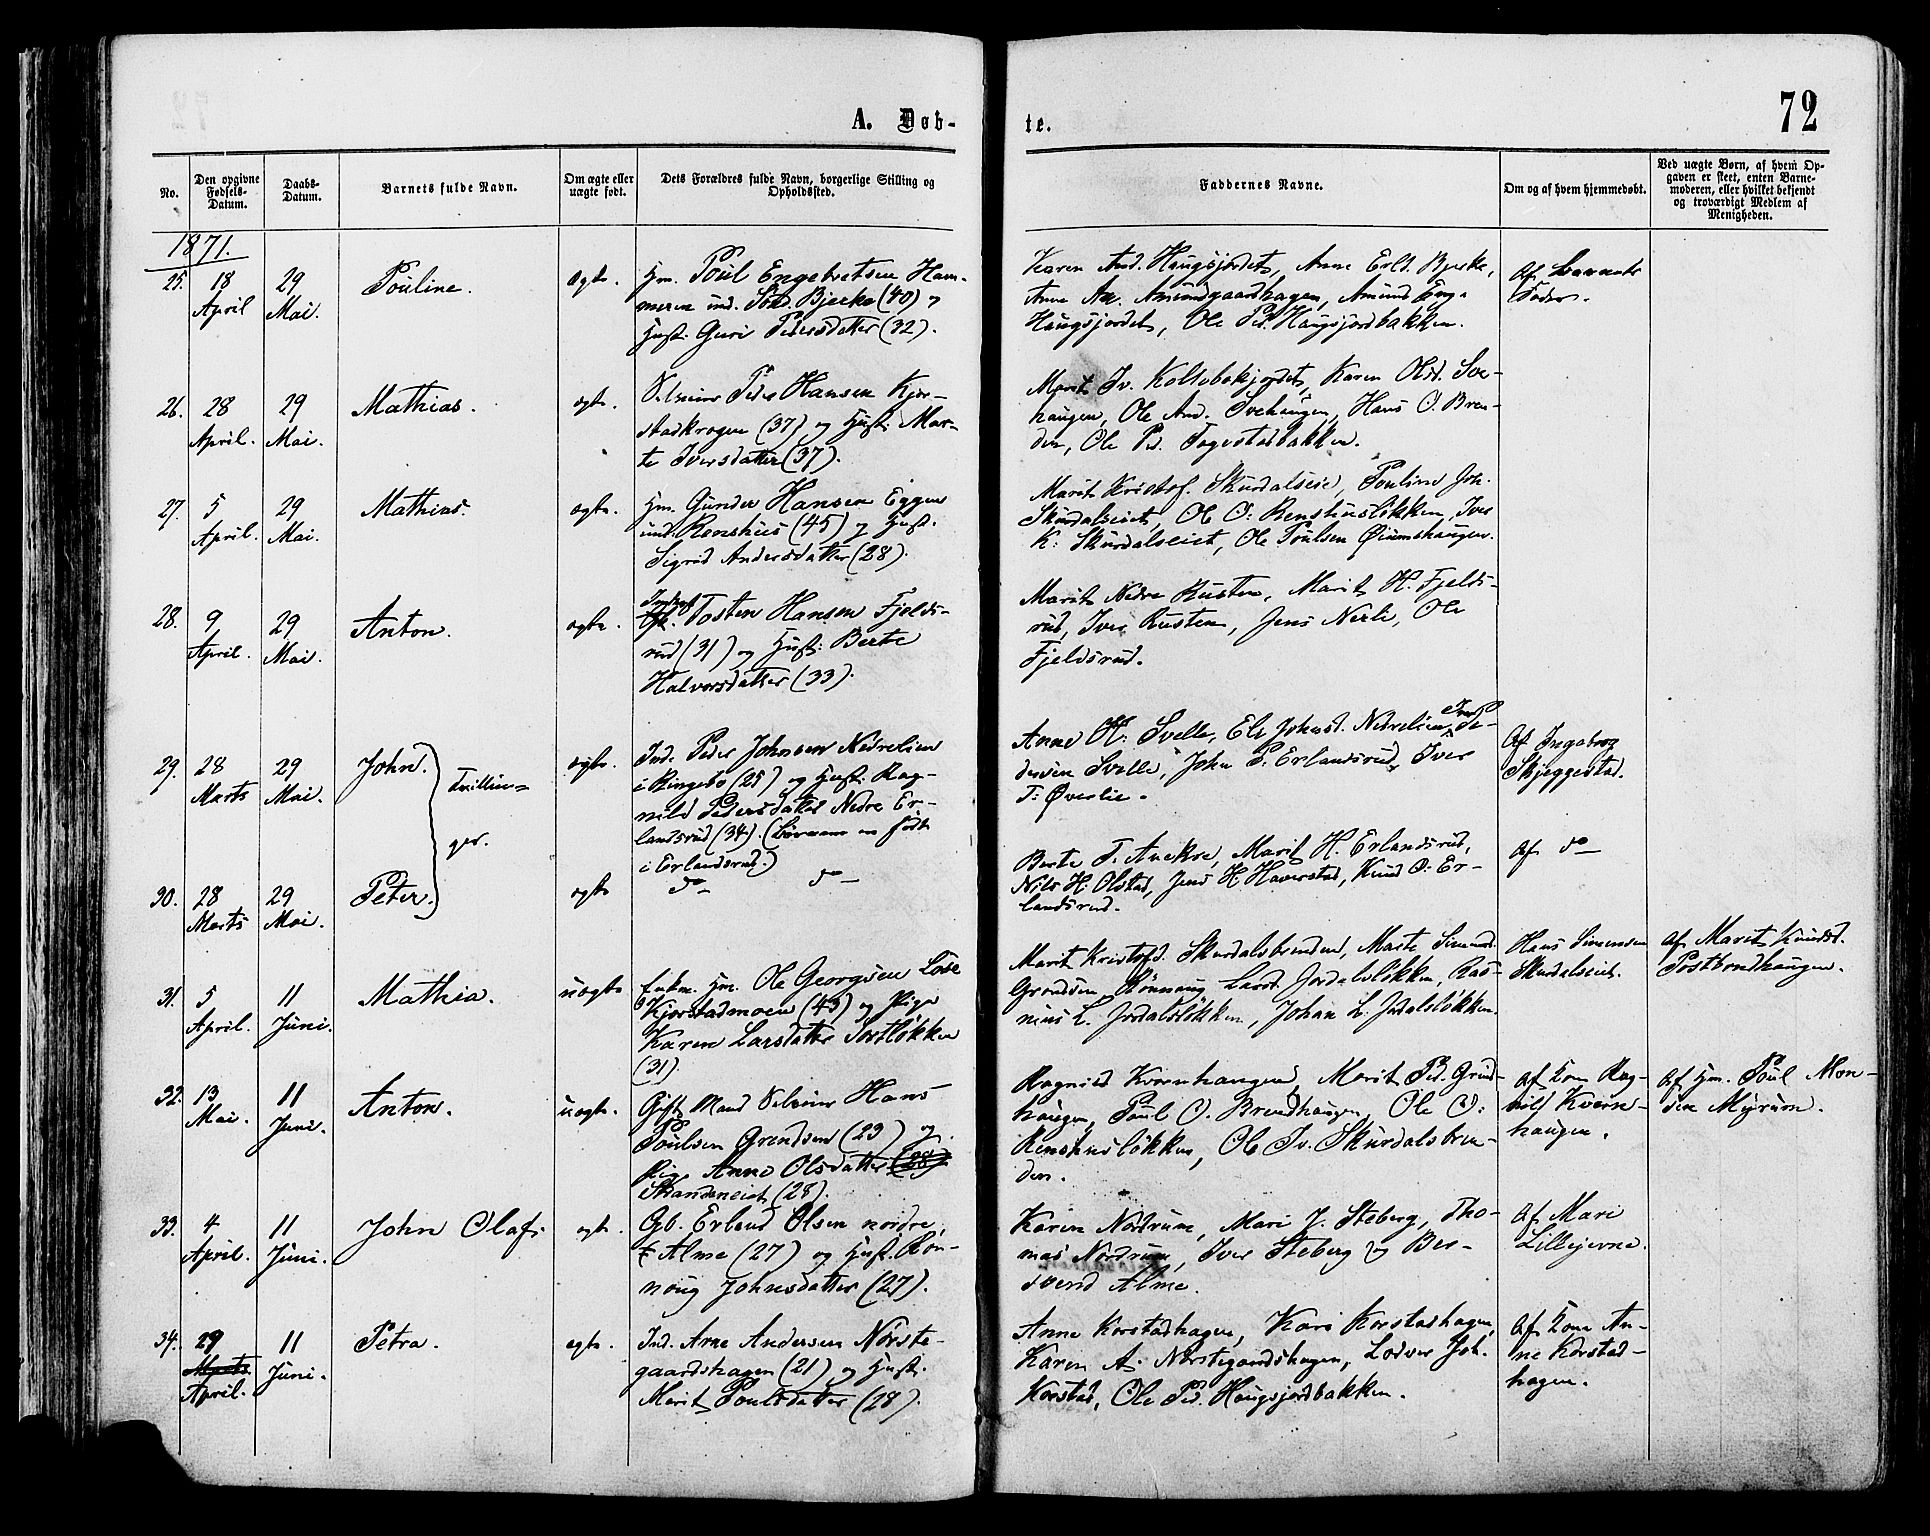 72
A. Døb-
te.
No.
Den opgivne Fødsels-Datum.
Daabs-Datum.
Barnets fulde Navn.
Om ægte eller uægte født.
Dets Forældres fulde Navn, borgerlige Stilling og Opholdssted.
Faddernes Navne.
Om og af hvem hjemmedøbt.
Ved uægte Børn, af hvem Op-
gaven er skeet, enten Barne-
moderen, eller hvilket bekjendt
og troværdigt Medlem af
Menigheden.
1871.
25. 18 April
29 Mai.
Pouline.
ægte.
Hm. Poul Engebretsen Ham-
meren ind. Bjerke (40) og
Hust. Guri Pedersdatter (32).
Karen And. Haugsjordet, Anne Erld. Bjerke,
Anne An. Amundgaardhagen, Amund Eng.
Haugsjordet, Ole Pd. Haugsjordbakken.
Af Barnets
Fader.
26. 28 April.
29 Mai.
Mathias.
ægte.
Selveier Peder Hansen Kjør-
stadkrogen (37) og Hust. Mar-
te Iversdatter (37).
Marit Iv. Kolsebakjordet, Karen Olsd. Sve-
haugen, Ole And. Svehaugen, Hans O. Bren-
den, Ole Pd. Fagestadbakken.
27. 5 April.
29 Mai.
Mathias.
ægte.
Hm. Gunder Hansen Eggen
und. Renshus (45) og Hust.
Sigrid Andersdatter (28).
Marit Kristof. Skurdalseie, Pouline Joh.
Skurdalseiet, Ole O. Renshusløkken, Iver
K. Skurdalseiet, Ole Poulsen Øiumshaugen.
28. 9 April.
29 Mai.
Anton.
ægte.
Tosten Hansen Fjelds-
rud (31) og Hust: Berte
Halvorsdatter (33).
Marit Nedre Rusten, Marit H. Fjelds-
rud, Iver Rusten, Jens Nerli, Ole
Fjeldsrud.
29. 28 Marts
29 Mai.
John.
Trillin-
ger.
ægte.
Ind. Peder Johnsen Nedrelien
i Ringebø (25) og Hust. Rag-
nild Pedersdatter Nedre Er-
landsrud (34). (Børnene er født
i Erlandsrud.)
Anne H. Svelle, Eli Johnsd. Nedrelien, Iver Pe-
dersen Svelle, John P. Erlandsrud, Iver
T: Øverlie.
Af Ingeborg
Skjeggestad.
30. 28 Marts
29 Mai.
Peter.
ægte
do do
Berte T. Aaekre, Marit H. Erlandsrud,
Nils H. Olstad, Jens H. Haverstad, Knud O. Er-
landsrud.
Af do
31. 5 April.
11 Juni.
Mathia.
uægte
Enkm. Hm. Ole Georgsen Lose
Kjorstadmoen (43) og Pige
Karen Larsdatter Tortløkken
(31).
Marit Kristofd. Skurdalsbrenden, Marte Simensd.
Grondsen, Rønnaug Larsd. Jordalsløkken, Ras-
mus L. Jordalsløkken, Johan L. Jordalsløkken.
Hans Simensen
Skurdalseiet.
Af Marit Knudsd.
Postbondhaugen.
32. 13 Mai.
11 Juni.
Anton.
uægte.
Gift Mand Selveier Hans
Poulsen Grendsen (29) og
Pige Anne Olsdatter (28)
(28).
Ragnild Kvernhaugen, Marit Pd. Grind-
haugen, Poul O. Brendhaugen, Ole O:
Renshusløkken, Ole Iv. Skurdalsbren-
den.
Af Kone Rag-
nild Kvern-
haugen.
Af Hm. Poul
Myrum.
33. 4 April.
11 Juni.
John Olaf.
ægte.
Gb. Erland Olsen nordre
Alme (27) og Hust. Røn-
noug Johnsdatter (27).
Karen Nordrum, Mari J. Steberg, Tho-
mas Nordrum, Iver Steberg og Ber-
svend Alme.
Af Mari
Lillejevne.
34. 29 Marts April.
11 Juni.
Petra.
ægte.
Ind. Arne Andersen Nørste-
gaardshagen (21) og Hust.
Marit Poulsdatter (28).
Anne Korstadhagen, Kari Korstadhagen,
Karen A. Nørstegardshagen, Lodver Joh.
Korstad, Ole Pd. Haugsjordbakken.
Af Kone An-
ne Korstad-
hagen.